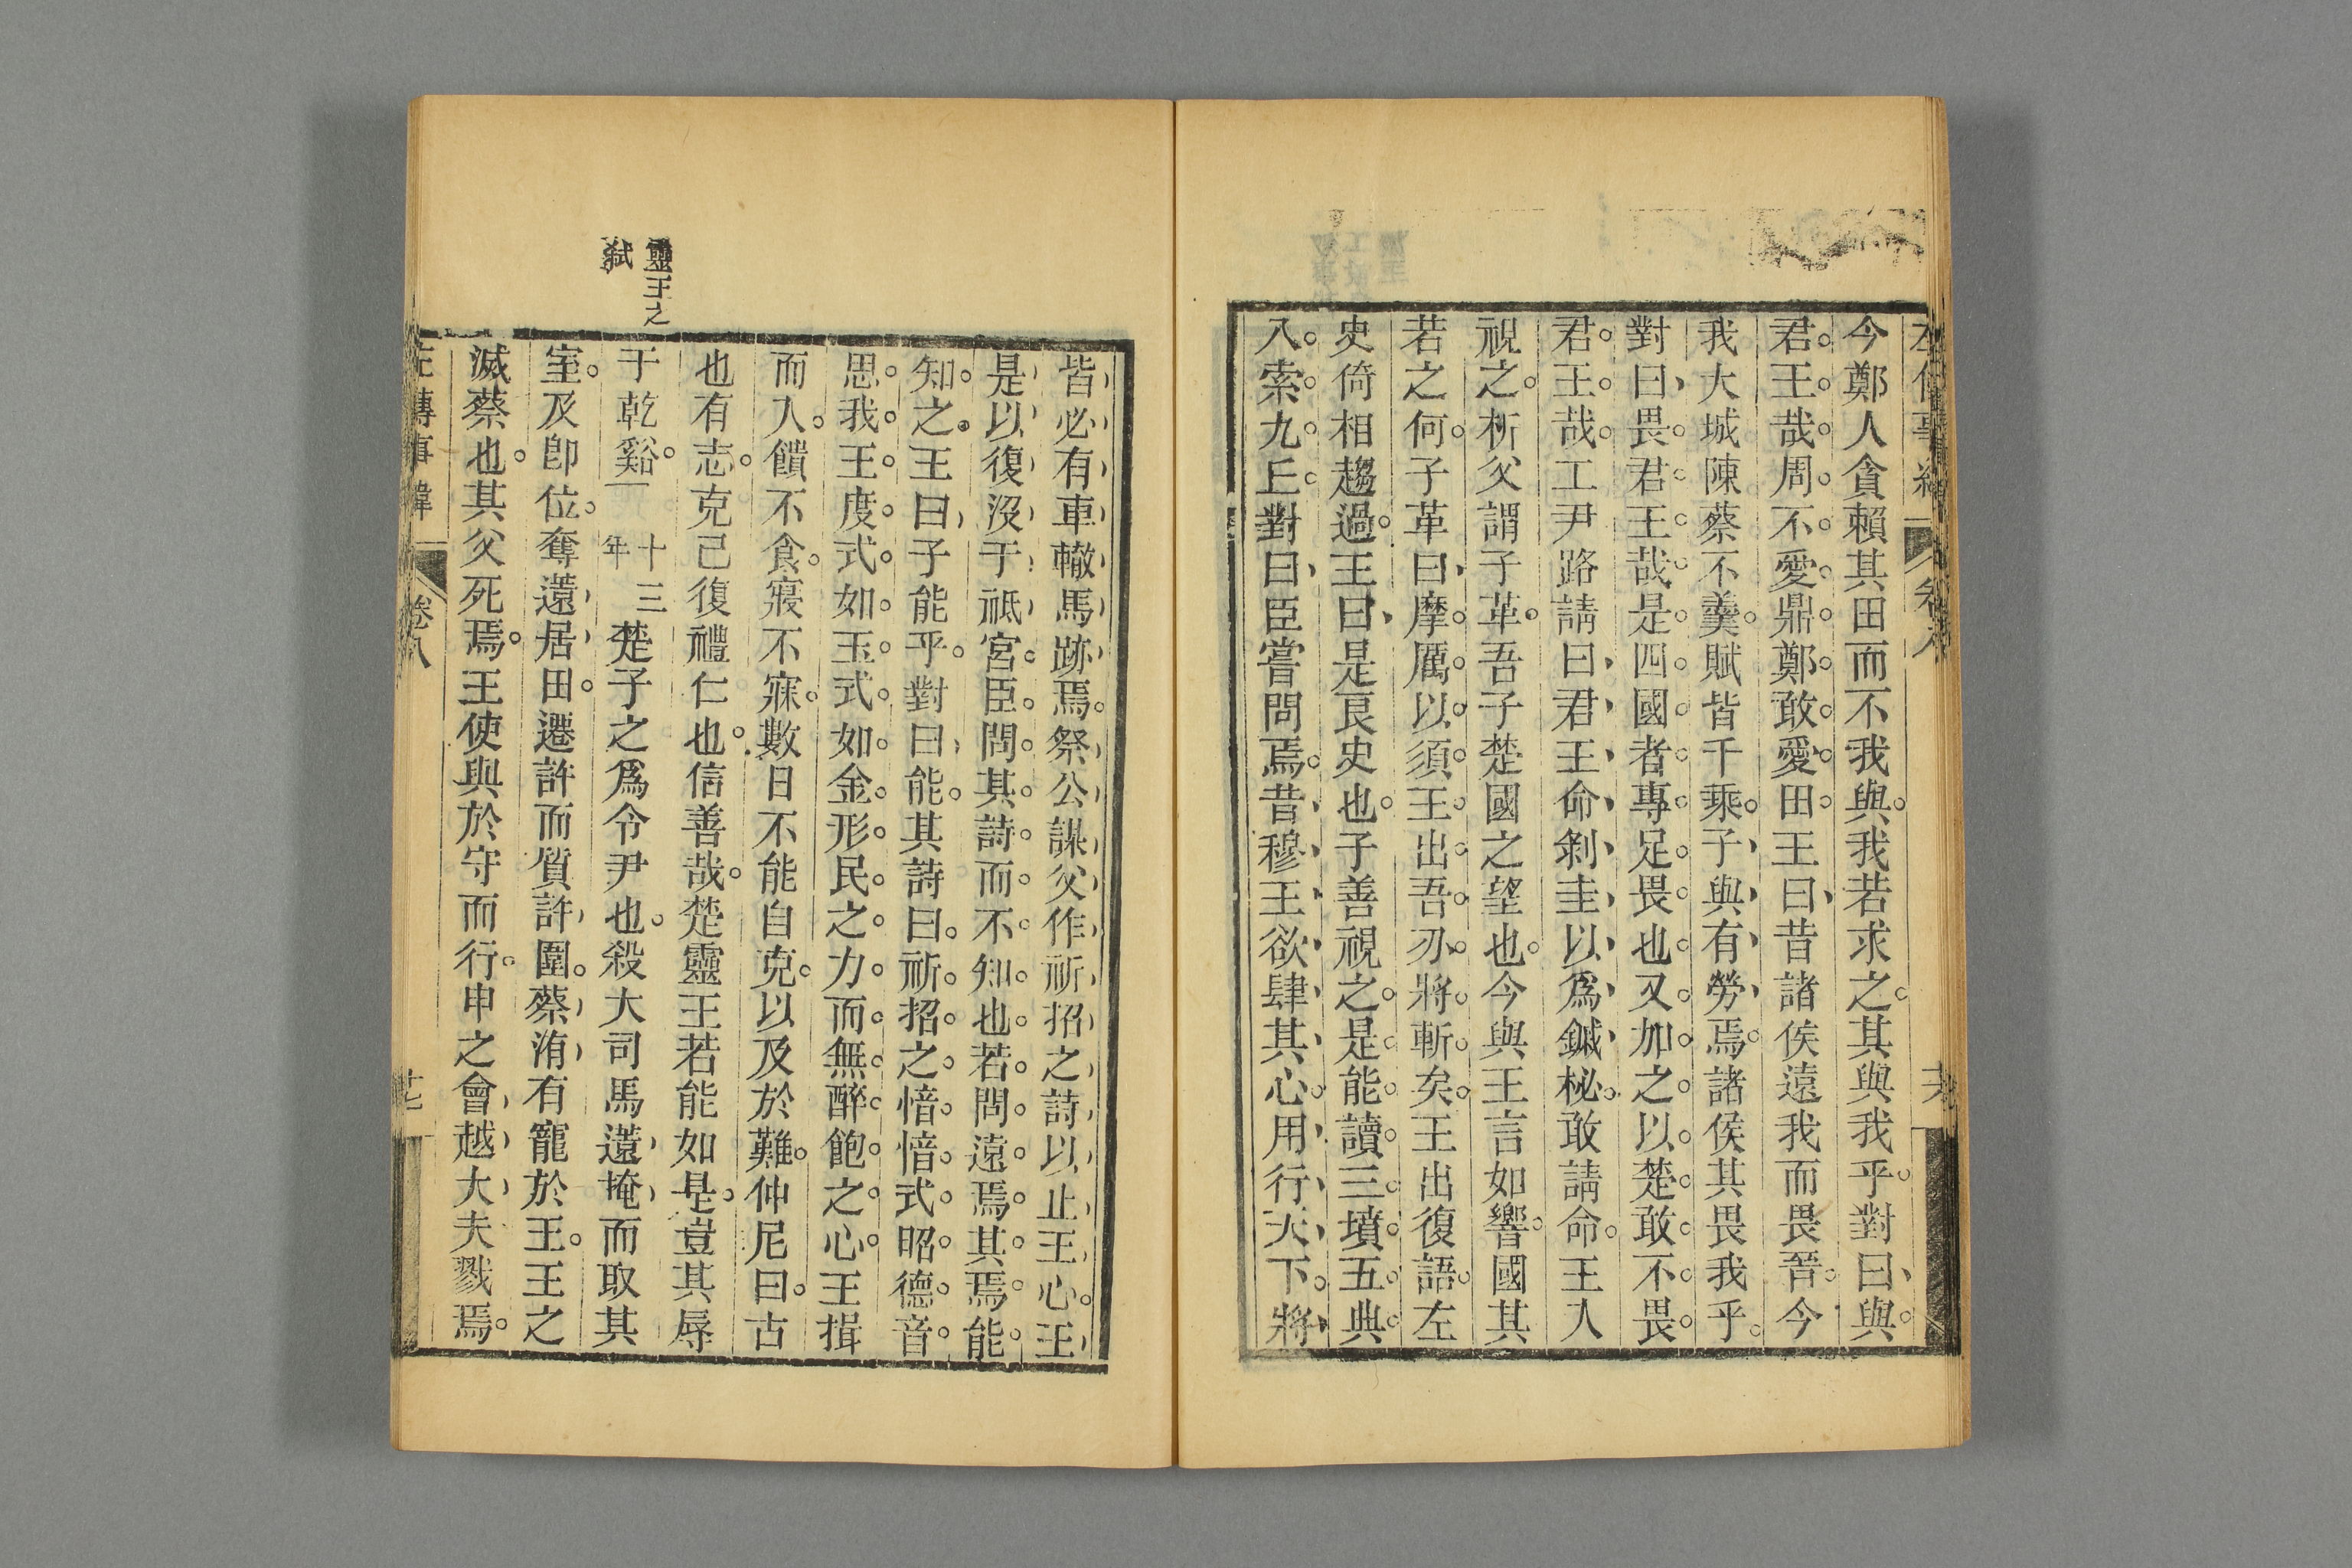 今鄭人貪賴其田而不我與。我若求之。其與我乎。對曰、與。
君。王。哉。周。不。愛。鼎。鄭。敢。愛。田。王曰、昔諸侯遠我而畏晉。今
我大城陳蔡不羹。賦皆千乘。子、與、有、勞、焉。諸侯其畏我乎。
對曰、畏。君。王。哉。是。四。國。者。專。足。畏。也。又。加。之。以。楚。敢。不。畏。
君。王。哉。工尹路請曰、君、王、命、剝、圭、以、爲、鏚、柲。敢請命。王入
視之。析父謂子革。吾子楚國之望也。今與王言如響。國其
若之何。子革曰、摩。厲。以。須。王。出。吾。刃。將。斬。矣。王出復語。左
史倚相趨過。王曰、是良史也。子善視之。是。能。讀。三。墳。五。典。
八。索。九。丘。對曰、臣嘗問焉。昔、穆、王、欲、肆、其、心。用、行、天、下。將、
皆、必、有、車、轍、馬、跡、焉。祭、公、謀、父、作、祈、招、之、詩、以、止、王、心。王、
是、以、復、沒、于、祗、宮。臣。問。其。詩。而。不。知。也。若。問。遠。焉。其。焉。能。
知。之。王曰、子能乎。對曰、能。其詩曰。祈。招。之。愔。愔。式。昭。德。音。
思。我。王。度。式。如。玉。式。如。金。形。民。之。力。而。無。醉。飽。之。心。王揖
而入。饋不食。寢不寐。數日不能自克。以及於難。仲尼曰。古
也有志。克己復禮仁也。信善哉。楚靈王若能如是。豈其辱
于乾谿。
靈王之
弒
十三
年
楚子之爲令尹也。殺大司馬薳、掩、而取其
室。及即位。奪薳、居、田。遷許而質許、圍。蔡、洧、有寵於王。王之
滅蔡也。其父死焉。王使與於守而行。申之會、越、大、夫戮焉。
左傳事緯
卷八